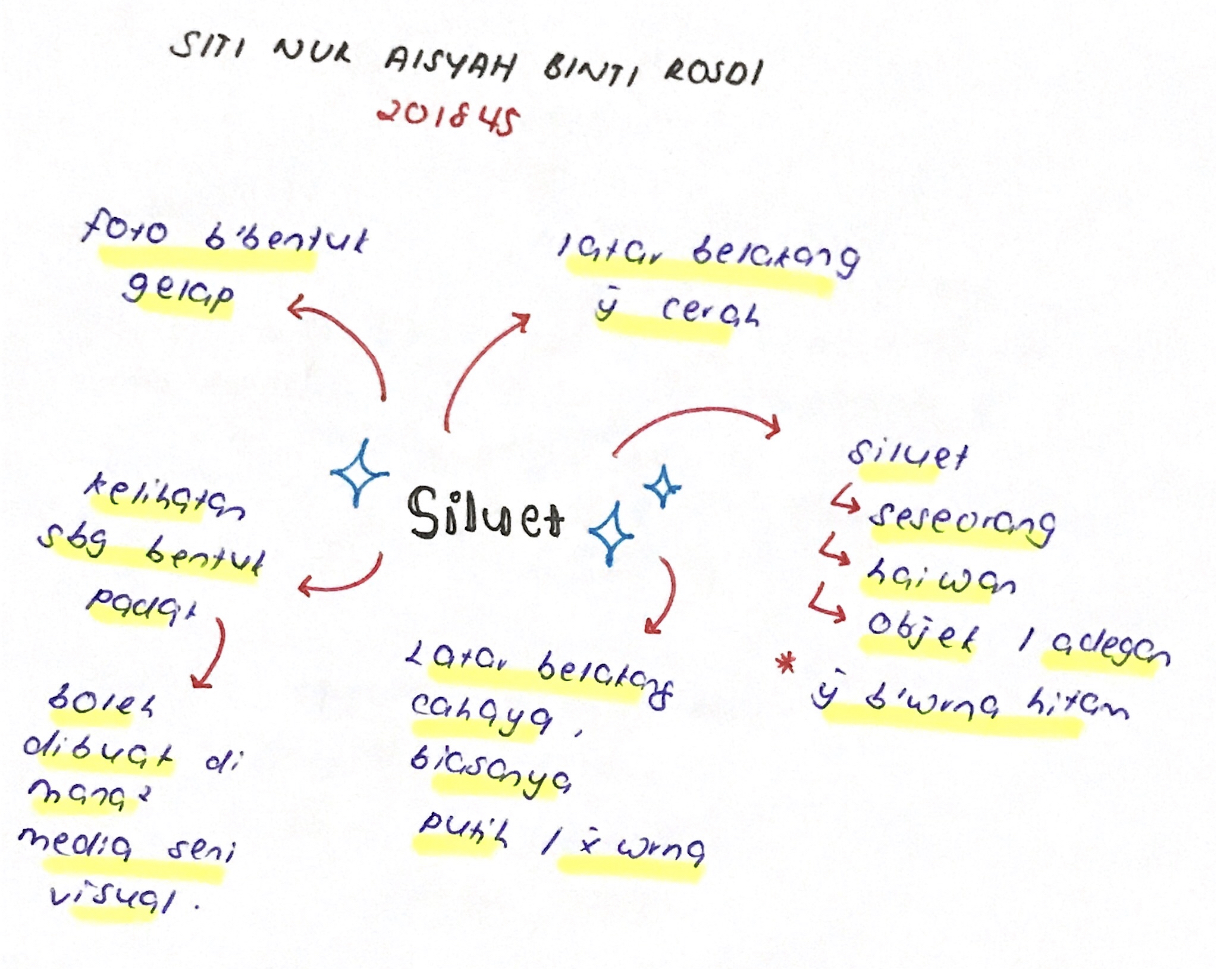 SITI NUR AISYAH BINTI ROSDI
201845
foto b'bentuk
gelap
latar belakang
ȳ cerah
Siluet
kelihatan
sbg bentuk
padat
boleh
dibuat di
mana²
media seni
visual.
Latar belakang
cahaya,
biasanya
putih / x̄ wrna
siluet
↳ seseorang
↳ haiwan
↳ objek / adegan
* ȳ b'wrna hitam